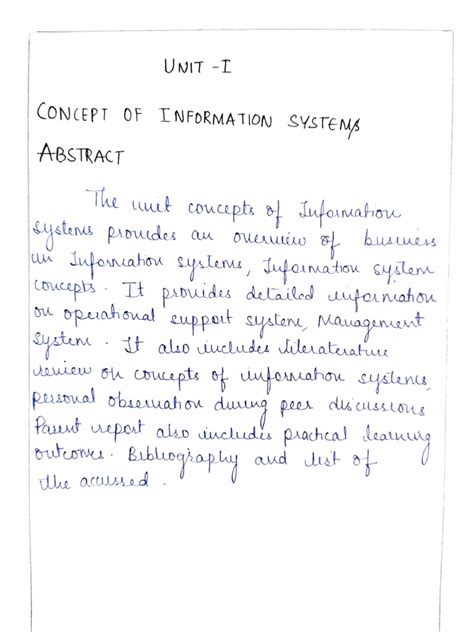 UNIT - I
CONCEPT OF INFORMATION SYSTEMS
ABSTRACT
The unit concepts of Information
systems provides an overview of business
in Information systems, Information system
concepts. It provides detailed information
on operational support system, Management
system. It also includes Literaterature
review on concepts of information systems,
personal observation during peer discussions
Parent report also includes practical learning
outcomes. Bibliography and list of
the